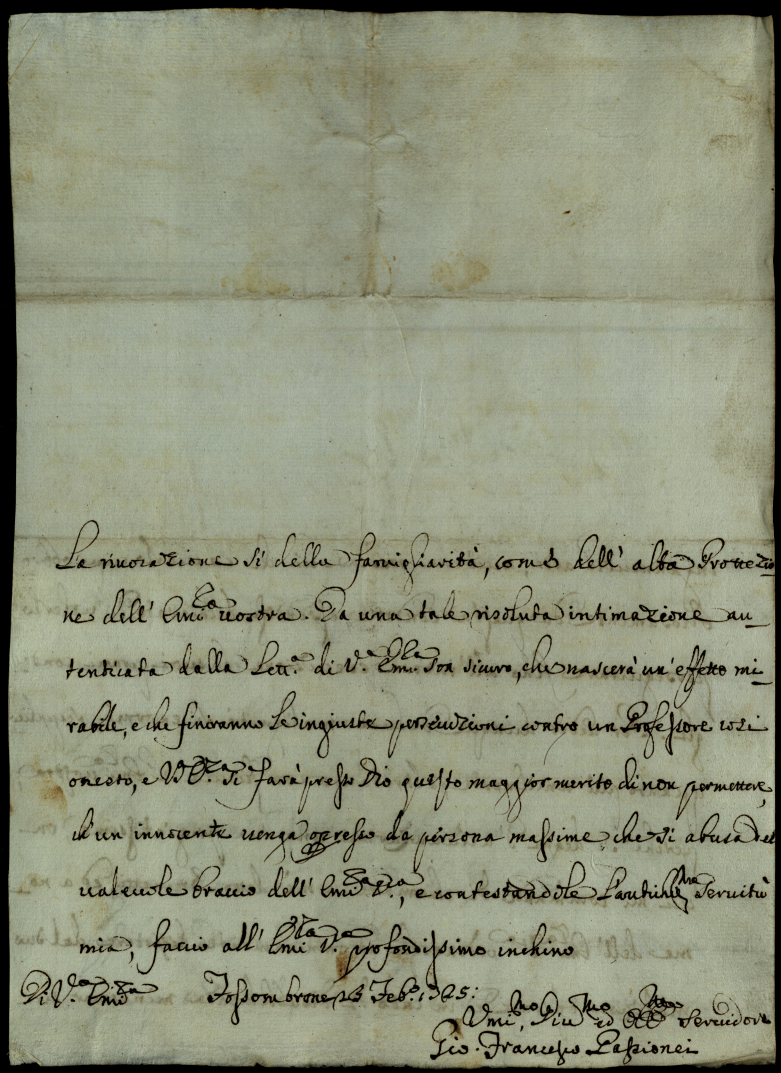 La rivocazione sì della famigliarità, come dell' alta Protezio
ne dell' Em:za vostra. Da una tale risoluta intimazione au_
tenticata dalla Lett.a di V.a Em:za son sicuro, che nascerà un' effetto mi_
rabile, e che finiranno le ingiuste persecuzioni contro un Professore così
onesto, e V.E. si farà presso Dio questo maggior merito di non permettere,
ch'un innocente venga opresso da persona massime che si abusa del
valevole braccio dell' Em:za V.a, e contestandole l'antich.ma Servitù
mia, faccio all' Em:za V.a profondissimo inchino
Di V.a Em:za Fossombrone 23 Feb.o 1725:
Umi.mo, Div.mo ed Obb.mo Servidore
Gio. Francesco Passionei